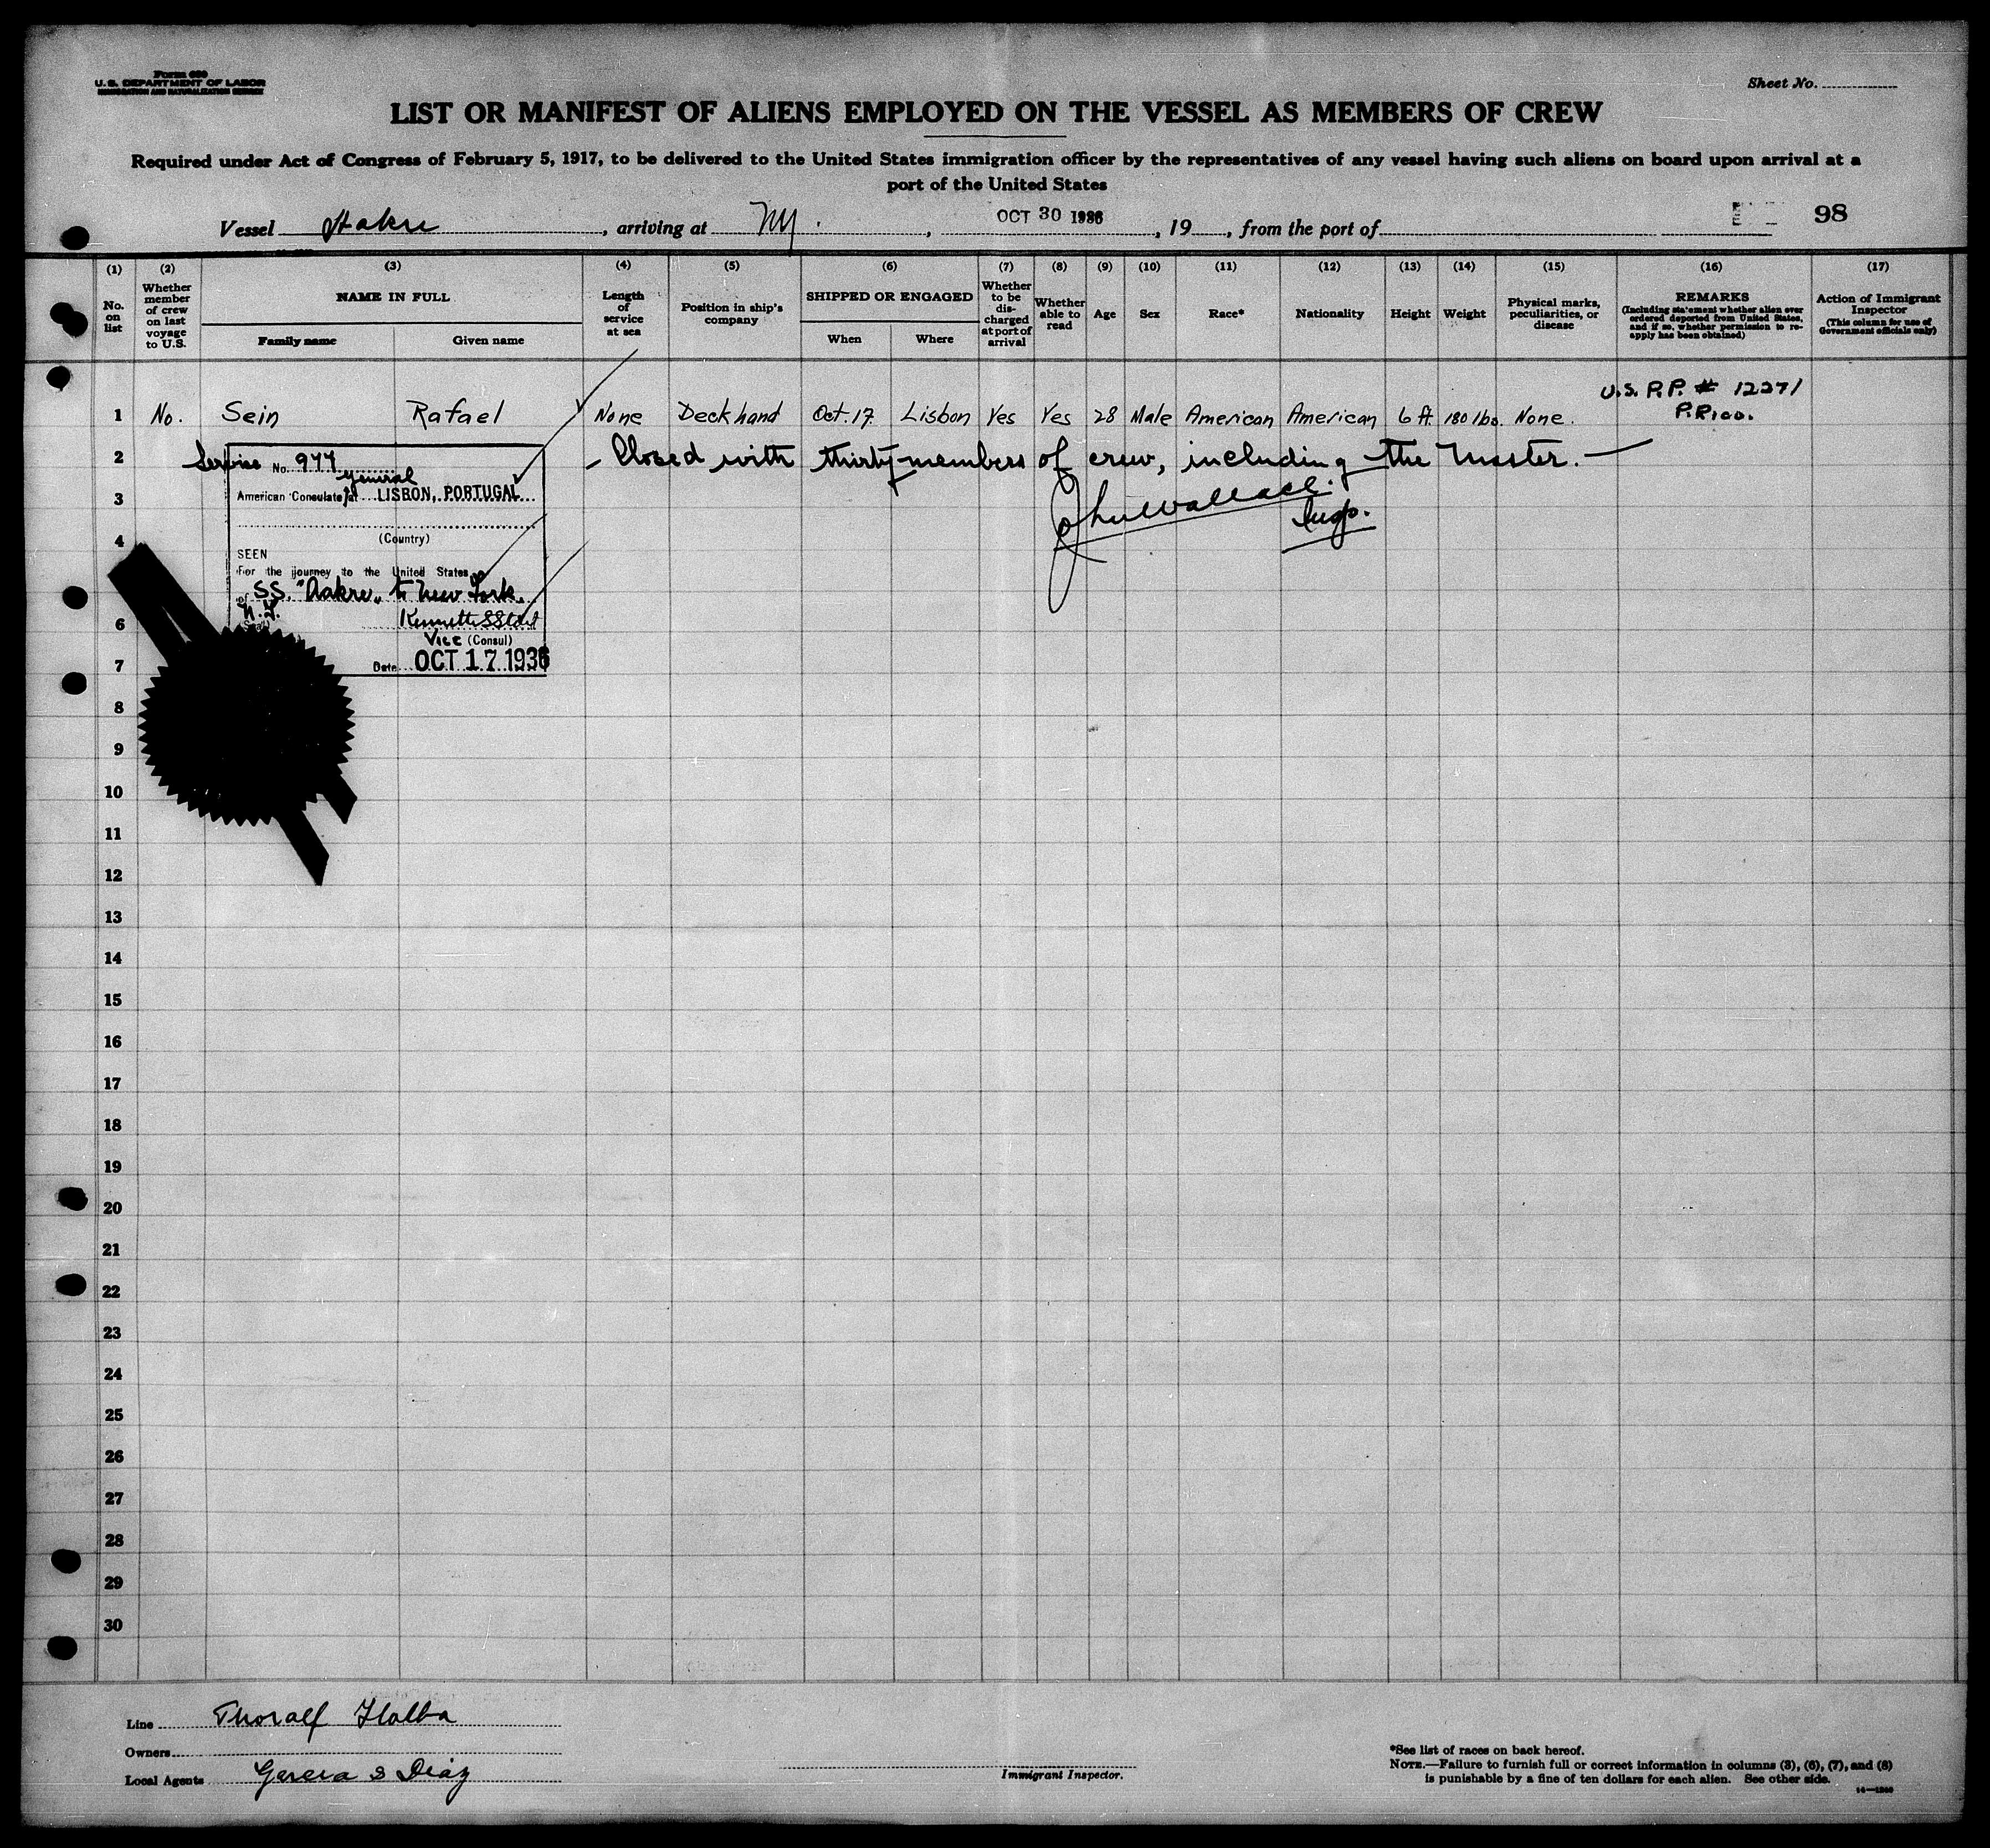 Form 680
U. S. DEPARTMENT OF LABOR
IMMIGRATION AND NATURALIZATION SERVICE
Sheet No.
LIST OR MANIFEST OF ALIENS EMPLOYED ON THE VESSEL AS MEMBERS OF CREW
Required under Act of Congress of February 5, 1917, to be delivered to the United States immigration officer by the representatives of any vessel having such aliens on board upon arrival at a
port of the United States
Vessel Aakre, arriving at NY., OCT 30 1936, 19, from the port of 98
(1) (2) (3) (4) (5) (6) (7) (8) (9) (10) (11) (12) (13) (14) (15) (16) (17)
No. on list
Whether member of crew on last voyage to U.S.
NAME IN FULL
Family name Given name
Length of service at sea
Position in ship's company
SHIPPED OR ENGAGED
When Where
Whether to be discharged at port of arrival
Whether able to read
Age
Sex
Race*
Nationality
Height
Weight
Physical marks, peculiarities, or disease
REMARKS
(Including statement whether alien ever ordered deported from United States, and if so, whether permission to re-apply has been obtained)
Action of Immigrant Inspector
(This column for use of Government officials only)
U.S. P.P. # 12271
1 No. Sein Rafael None Deckhand Oct. 17. Lisbon Yes Yes 28 Male American American 6 ft. 180 lbs. None. P.Rico.
2 - Closed with thirty members of crew, including the Master. -
John Wallace.
Insp.
Service No. 977
General
American Consulate at LISBON, PORTUGAL
(Country)
SEEN
For the journey to the United States
of SS. "Aakre" to New York,
N.Y.
(Seal)
Vice (Consul)
Date OCT 17 1936
3
4
6
7
8
9
10
11
12
13
14
15
16
17
18
19
20
21
22
23
24
25
26
27
28
29
30
Line Thoralf Holba
Owners
Local Agents Garcia & Diaz
Immigrant Inspector.
*See list of races on back hereof.
NOTE.—Failure to furnish full or correct information in columns (3), (6), (7), and (8)
is punishable by a fine of ten dollars for each alien. See other side.